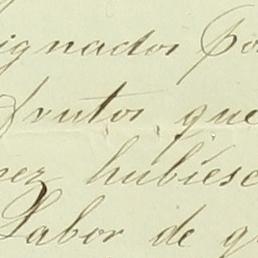 ignados por
frutos que
nez hubiese
Labor de q